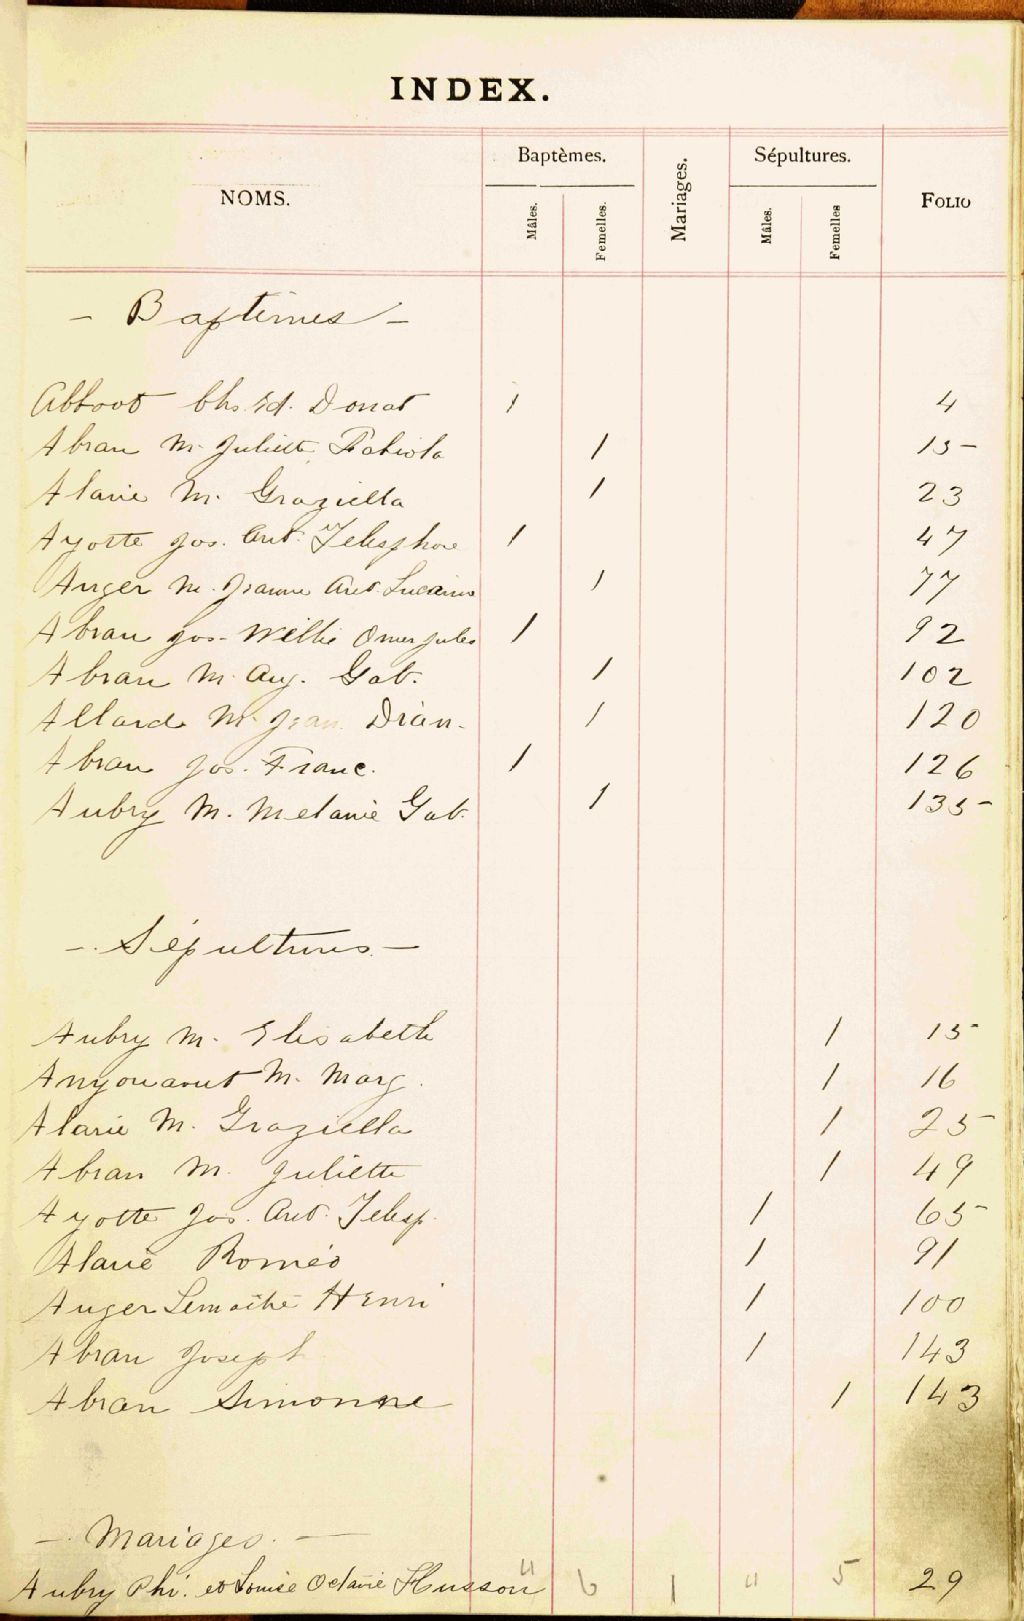 INDEX.
NOMS. Baptèmes. Mâles. Femelles. Mariages. Sépultures. Mâles. Femelles Folio
- Baptêmes -
Abbott Chs. Ed. Donat 1 4
Abran M. Juliette Fabiola 1 15
Alarie M. Graziella 1 23
Ayotte Jos. Ant. Telesphore 1 47
Auger M. Jeanne Ant. 1 77
Abran Jos. Willie Omer Jules 1 92
Abran M. Aug. Gab. 1 102
Allard M. Jean Drian. 1 120
Abran Jos. Franc. 1 126
Aubry M. Melanie Gab. 1 135
- Sépultures -
Aubry M. Elisabeth 1 15
M. Marg. 1 16
Alarie M. Graziella 1 25
Abran M. Juliette 1 49
Ayotte Jos. Ant. Telesp. 1 65
Alarie Roméo 1 91
Auger Lemaitre Henri 1 100
Abran Joseph 1 143
Abran Simonne 1 143
- Mariages. -
Aubry Phi. et Louise Octavie Husson 4 6 1 4 5 29